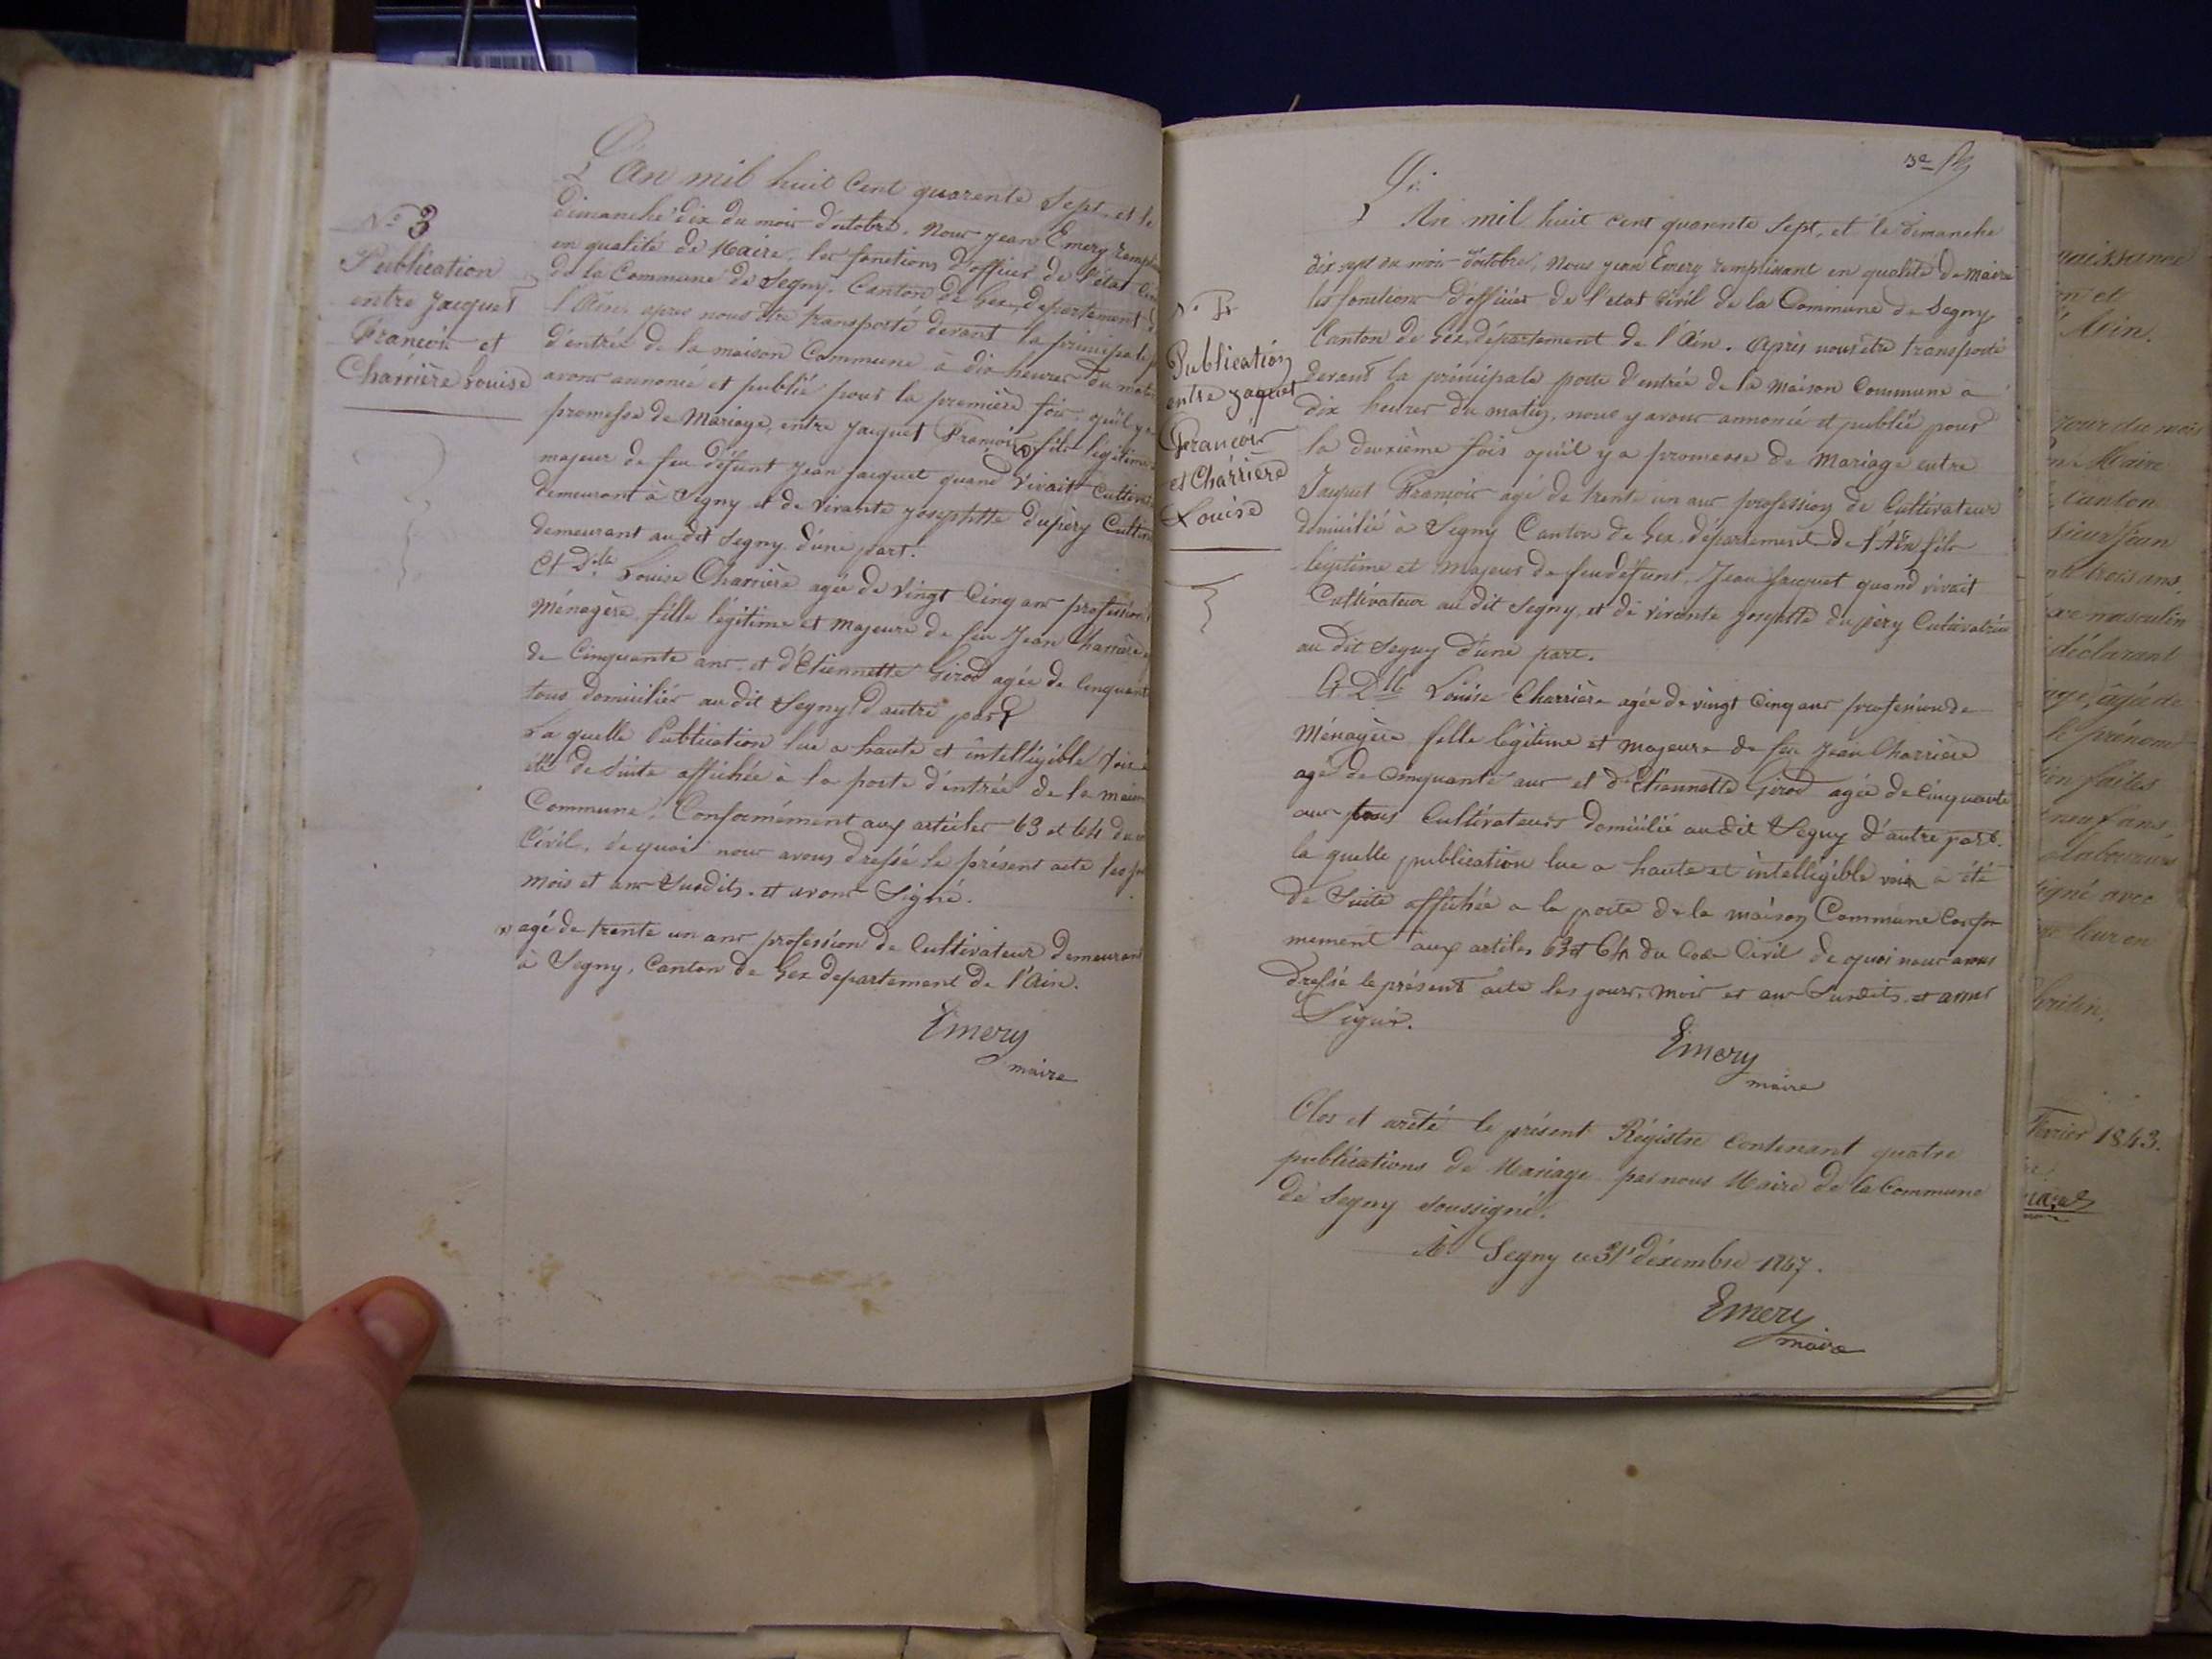 N.º 3
Publication
entre Jacquet
François et
Charrière Louise
L'An mil huit Cent quarente Sept, et le
dimanche dix du mois d'octobre. Nous Jean Emery
en qualité de Maire, les fonctions d'officier de l'état
de la Commune de Segny, Canton de Gex, département
l'Ain, apres nous être transporté devant la principale
d'entrée de la maison Commune à dix heures du
avons annoncé et publié pour la première fois qu'il y
promesse de Mariage, entre Jacquet François fils légitime
majeur de feu défunt Jean Jacquet quand vivait
demeurant à Segny et de vivante Josephtte dupèry
demeurant au dit Segny d'une part.
Et Dlle Louise Charrière agée de vingt Cinq ans profession
Ménagère, fille légitime et majeure de feu Jean Charrière
de Cinquante ans et d'Etiennette Girod agée de
tous domiciliés au dit Segny d'autre part
La quelle Publication lue a haute et intelligible
été de Suite affichée à la porte d'entrée de la
Commune, Conformément aux articles 63 et 64 du
Civil, de quoi nous avons dressé le présent acte les
mois et ans Susdits, et avons Signé.
x agé de trente un ans profession de Cultivateur demeurant
à Segny, Canton de Gex departement de l'Ain.
Emery
maire
3e
N.º 4
Publication
entre Jaquet
François
et Charrière
Louise
L'An mil huit cent quarente Sept, et le dimanche
dix sept du mois d'octobre, Nous Jean Emery remplissant en qualité de Maire
les fonctions d'officier de l'état Civil de la Commune de Segny
Canton de Gex, département de l'Ain. Après nous être transporté
devant la principale porte d'entrée de la Maison Commune à
dix heures du matin, nous y avons annoncé et publié pour
la deuxième fois qu'il y a promesse de Mariage entre
Jaquet François agé de trente un ans profession de Cultivateur
domicilié à Segny Canton de Gex, département de l'Ain fils
légitime et Majeur de feu défunt, Jean Jacquet quand vivait
Cultivateur au dit Segny, et de vivante Josephtte dupèry Cultivatrice
au dit Segny d'une part.
Et Dlle Louise Charrière agée de vingt Cinq ans profession de
Ménagère fille légitime et majeure de feu Jean Charrière
agé de Cinquante ans et d'Etiennette Girod agée de Cinquante
ans tous Cultivateurs domicilié au dit Segny d'autre part.
la quelle publication lue a haute et intelligible voix a été
de Suite affichée a la porte de la maison Commune Confor
mement aux articles 63 et 64 du Code Civil de quoi nous avons
dressé le présent acte les jours, mois et ans Susdits, et avons
Signé.
Emery
maire
Clos et arêté le présent Régistre Contenant quatre
publications de Mariage par nous Maire de la Commune
de Segny soussigné.
A Segny ce 31 décembre 1847.
Emery
maire
n et
l'Ain.
jour du mois
Maire
Canton
sieur Jean
trois ans
masculin
déclarant
âgé de
le prénom
faites
neuf ans,
laboureur
signé avec
Fevrier 1843.